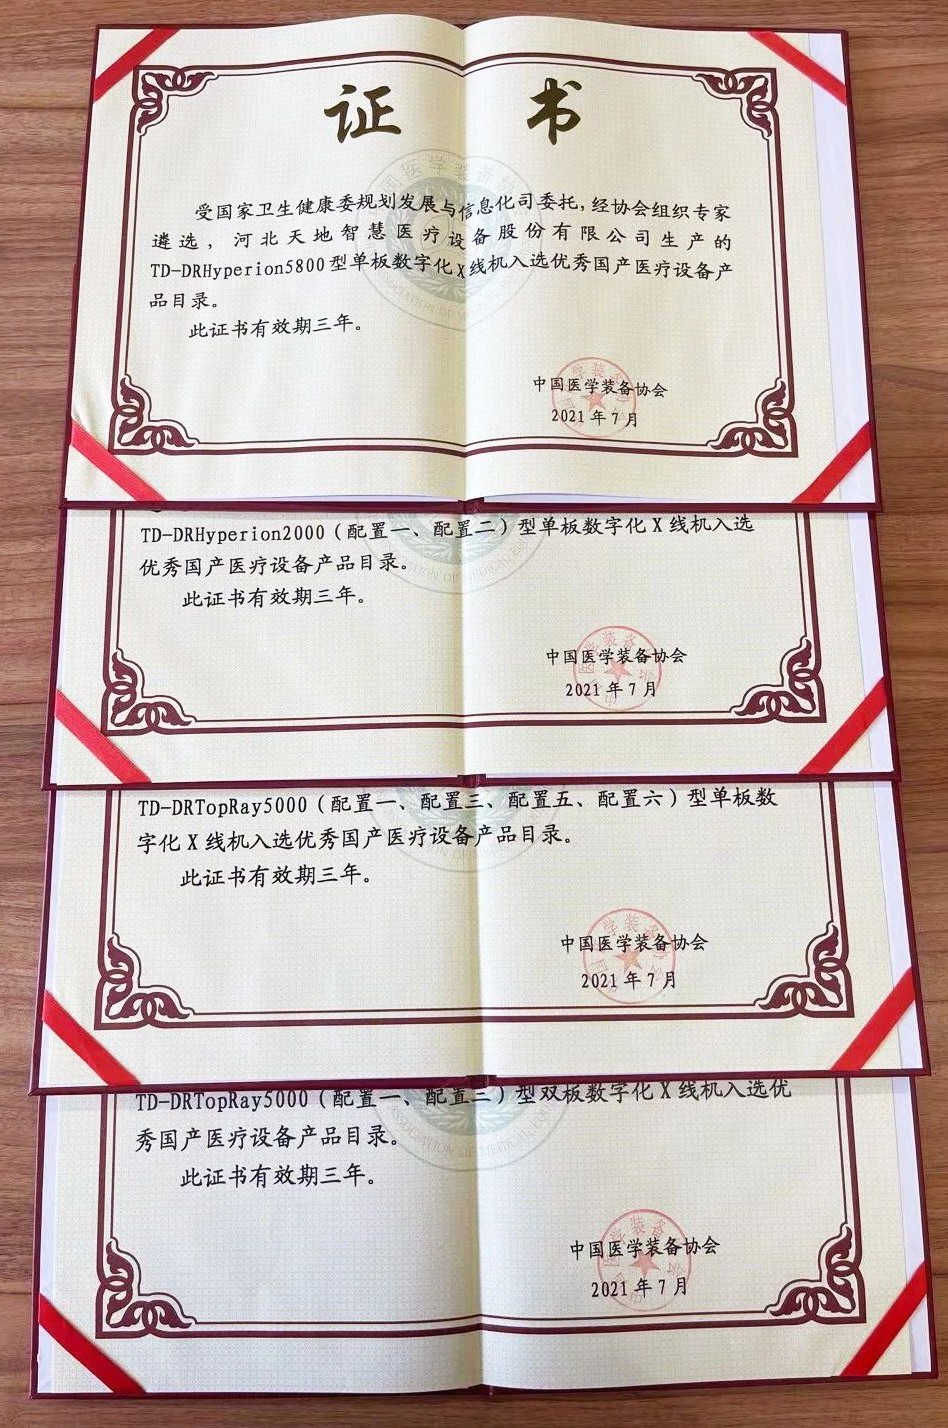 证 书
受国家卫生健康委规划发展与信息化司委托,经协会组织专家
遴选，河北天地智慧医疗设备股份有限公司生产的
TD-DRHyperion5800型单板数字化X线机入选优秀国产医疗设备产
品目录。
此证书有效期三年。
中国医学装备协会
2021年7月
TD-DRHyperion2000（配置一、配置二）型单板数字化X线机入选
优秀国产医疗设备产品目录。
此证书有效期三年。
中国医学装备协会
2021年7月
TD-DRTopRay5000（配置一、配置三、配置五、配置六）型单板数
字化X线机入选优秀国产医疗设备产品目录。
此证书有效期三年。
中国医学装备协会
2021年7月
TD-DRTopRay5000（配置一、配置三）型双板数字化X线机入选优
秀国产医疗设备产品目录。
此证书有效期三年。
中国医学装备协会
2021年7月